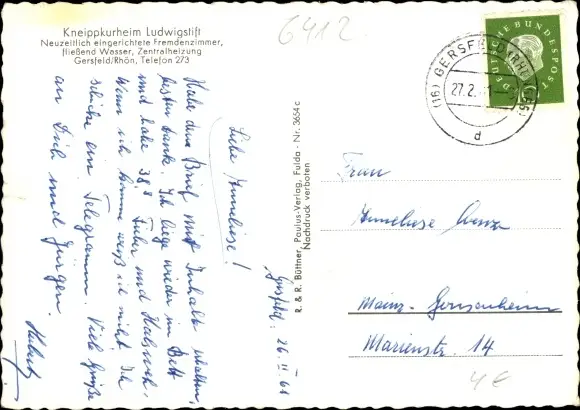 Kneippkurheim Ludwigstift
Neuzeitlich eingerichtete Fremdenzimmer,
fließend Wasser, Zentralheizung
Gersfeld/Rhön, Telefon 273
6412
DEUTSCHE BUNDESPOST
(16) GERSFELD (RHÖN)
27.2.61
d
Gersfeld, 26. II 61
Liebe Anneliese!
Habe dein Brief mit Inhalt erhalten,
besten Dank. Ich liege wieder im Bett
und habe 38,8 Fieber und Halsweh.
Wann ich komme weiß ich nicht. Ich
schicke ein Telegramm. Viele Grüße
an Dich und Jürgen.
R. & R. Büttner, Paulus-Verlag, Fulda - Nr. 3654 c
Nachdruck verboten
Frau
Anneliese
Mainz-Gonsenheim
Marienstr. 14
4€